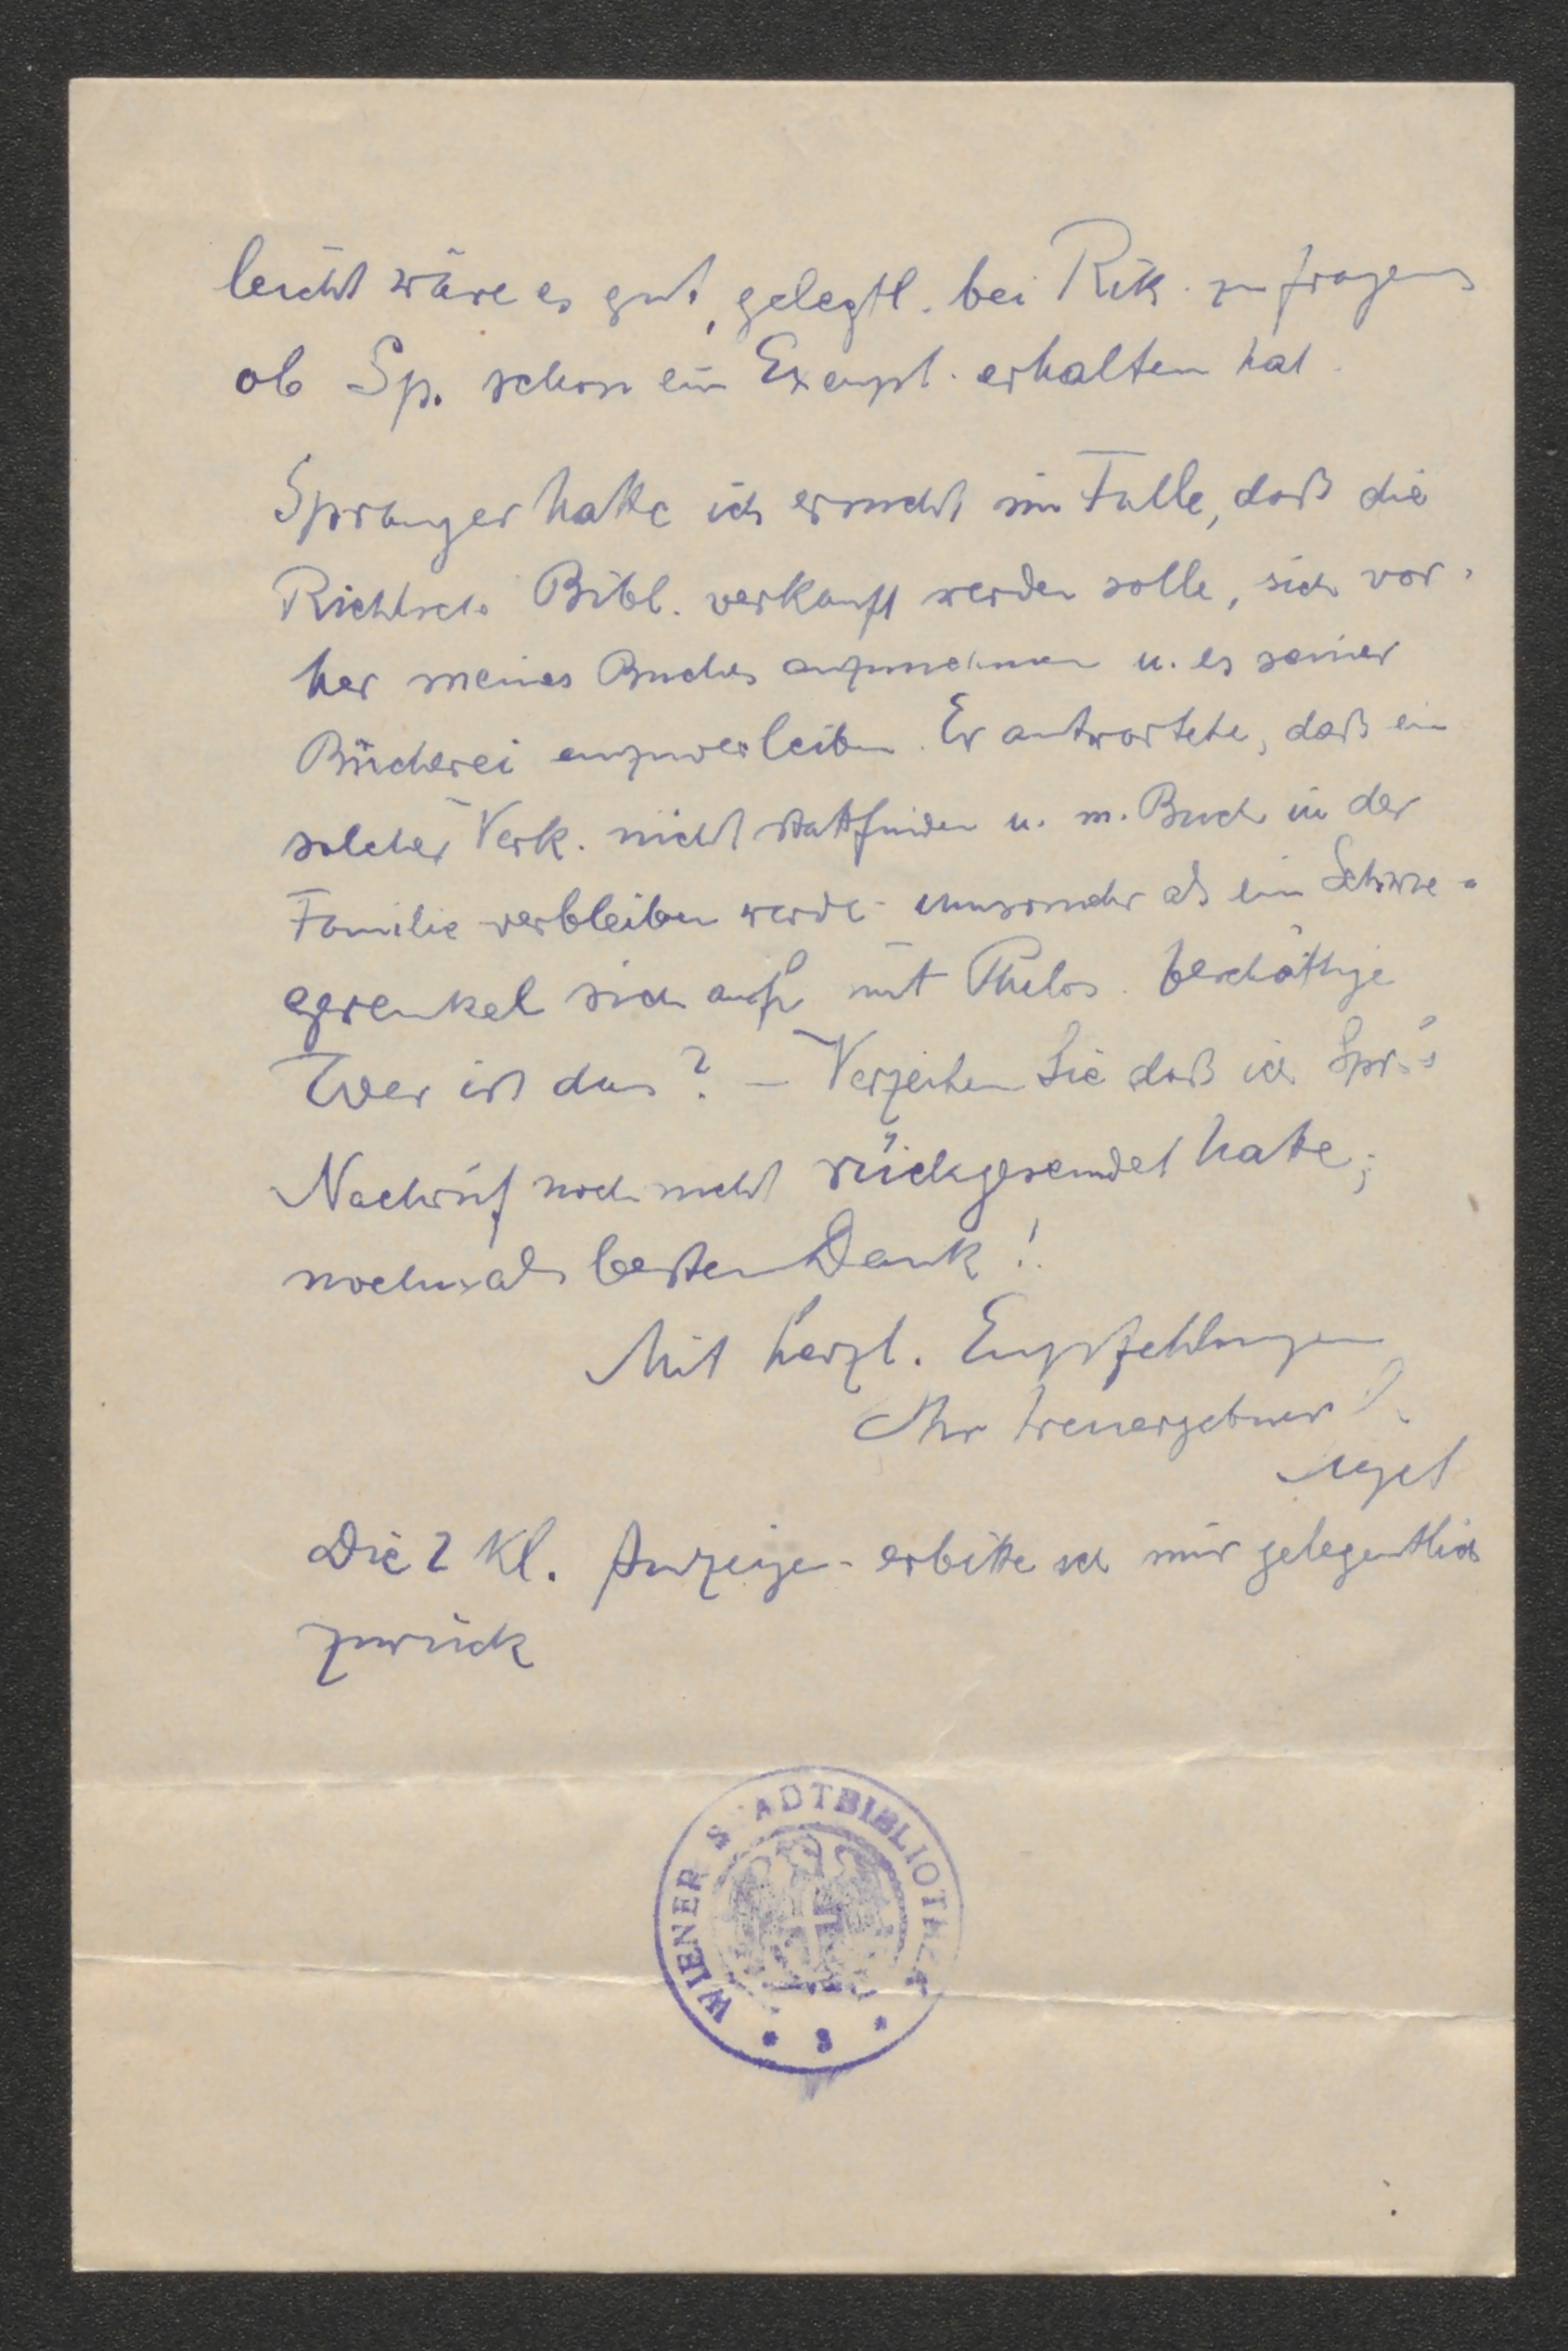 leicht wäre es gut, gelegtl. bei Rik. zu fragen
ob Sp. schon ein Exempl. erhalten hat.
Spranger hatte ich ersucht im Falle, daß die
Riehlsche Bibl. verkauft werden solle, sich vor-
her meines Buches anzunehmen u. es seiner
Bücherei einzuverleiben. Er antwortete, daß ein
solcher Verk. nicht stattfinden u. m. Buch in der
Familie verbleiben werde umsomehr als ein Schwie-
gerenkel sich auch mit Philos. beschäftige
Wer ist das? – Verzeihen Sie daß ich Spr.'s
Nachruf noch nicht rückgesendet hatte;
nochmals besten Dank!
Mit herzl. Empfehlungen
Ihr treuergebner
Die 2 kl. Anzeigen erbitte ich mir gelegentlich
zurück
WIENER STADTBIBLIOTHEK
* 8 *